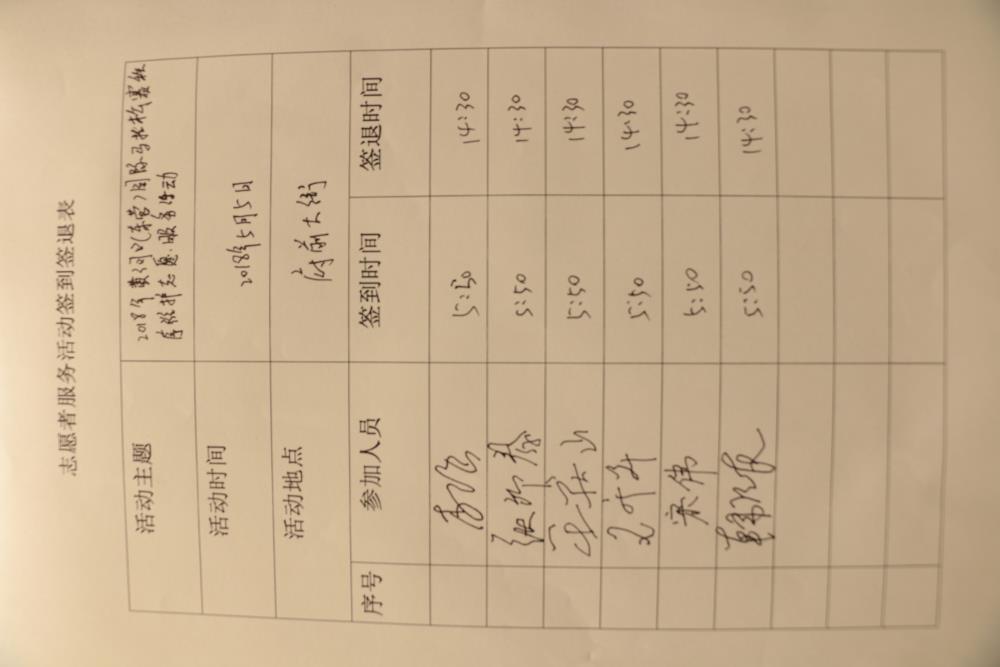 志愿者服务活动签到签退表
活动主题 2018年黄河口(东营)国际马拉松赛秩
序维护志愿服务活动
活动时间 2018年5月5日
活动地点 府前大街
序号 参加人员 签到时间 签退时间
5:50 14:30
5:50 14:30
5:50 14:30
5:50 14:30
宋伟 5:50 14:30
5:50 14:30